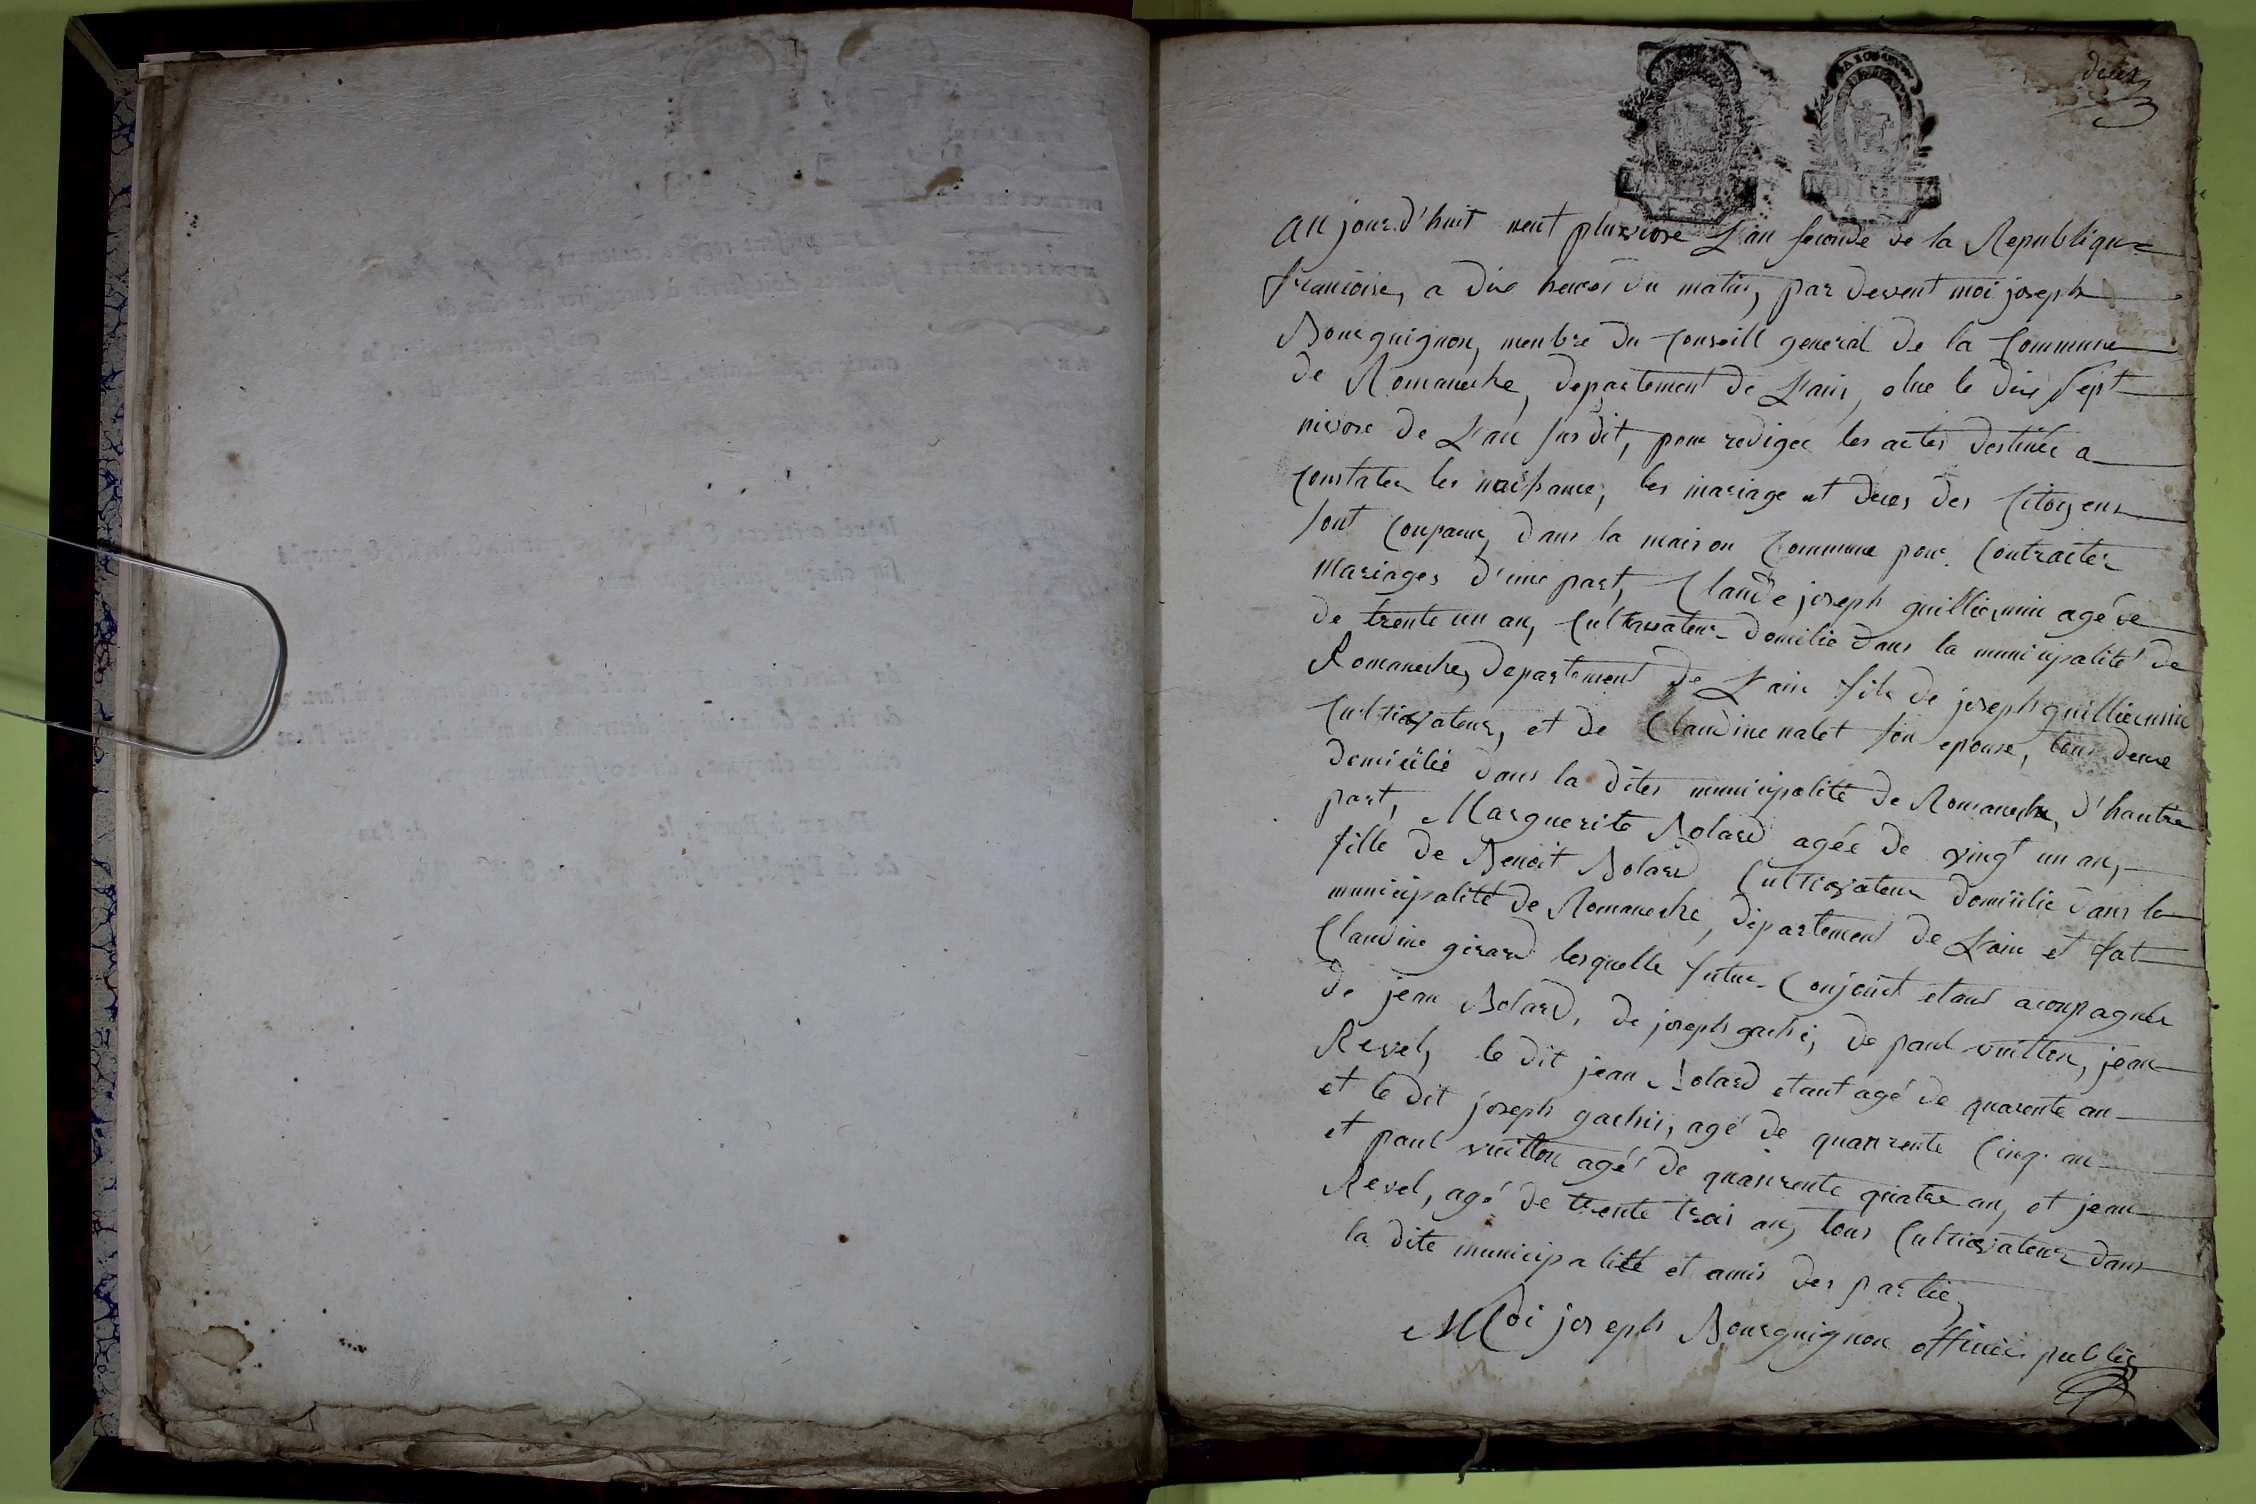 deux
aujour.d'huit neut pluviose L'an seconde de la Republique
francoise, a dix heures du matin, par devent moi joseph
Bourguignon, menbre du Conseill general de la Commune
de Romaneche, departement de L'ain, elue le dix sept
nivose de L'an susdit, pour rediger les actes destinée a
Constater les naissance, les mariage et deces des Citoyens
sont Conparue, dans la maison Commune pour Contracter
Mariages d'une part, Claude joseph guilliermin agé de
de trente un an, Cultivateur domilié dans la municipalité de
Romaneche, departement de L'ain fils de joseph guilliermin
Cultivateur, et de Claudine nalet son epouse, tous deux
domicilié dans la dites municipalité de Romaneche, d'hautre
part, Marguerite Bolard agée de vingt un an,
fille de Benoit Bolard Cultivateur domicilié dans la
municipalité de Romaneche, departement de L'ain et fat
Claudine girard lesquelle futur Conjoint etant aconpagner
de jean Bolard, de joseph gachi, de paul vuillon, jean
Revel, le dit jean Bolard etant agé de quarente an
et le dit joseph gachis, agé de quanrente Cinq an
et paul vuillon agé de quanrente quatre an, et jean
Revel, agé de trente trois an, tous Cultivateur dans
la dite municipalité et amis des partie
Moi joseph Bourguignon officier public